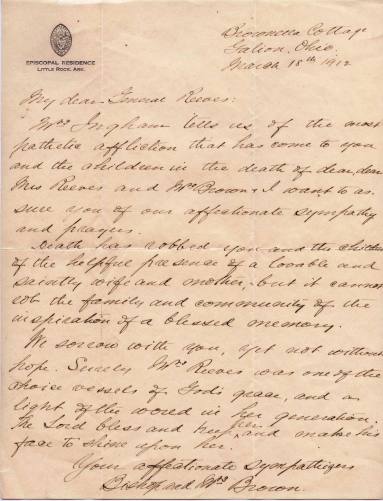 EPISCOPAL RESIDENCE
LITTLE ROCK, ARK.
Brownella Cottage
Galion, Ohio.
March 18th 1912
My dear General Reeves:
Mrs Ingham tells us of the most
pathetic affliction that has come to you
and the children in the death of dear, dear
Mrs Reeves and Mrs Brown & I want to as
sure you of our affectionate sympathy
and prayers.
Death has robbed you and the children
of the helpful presence of a lovable and
saintly wife and mother, but it cannot
rob the family and community of the
inspiration of a blessed memory.
We sorrow with you, yet not without
hope. Surely Mrs Reeves was one of the
choice vessels of God's grace, and a
light of the world in her generation.
The Lord bless and keep her and make his
face to shine upon her.
Your affectionate sympathizers
Bishop and Mrs Brown.